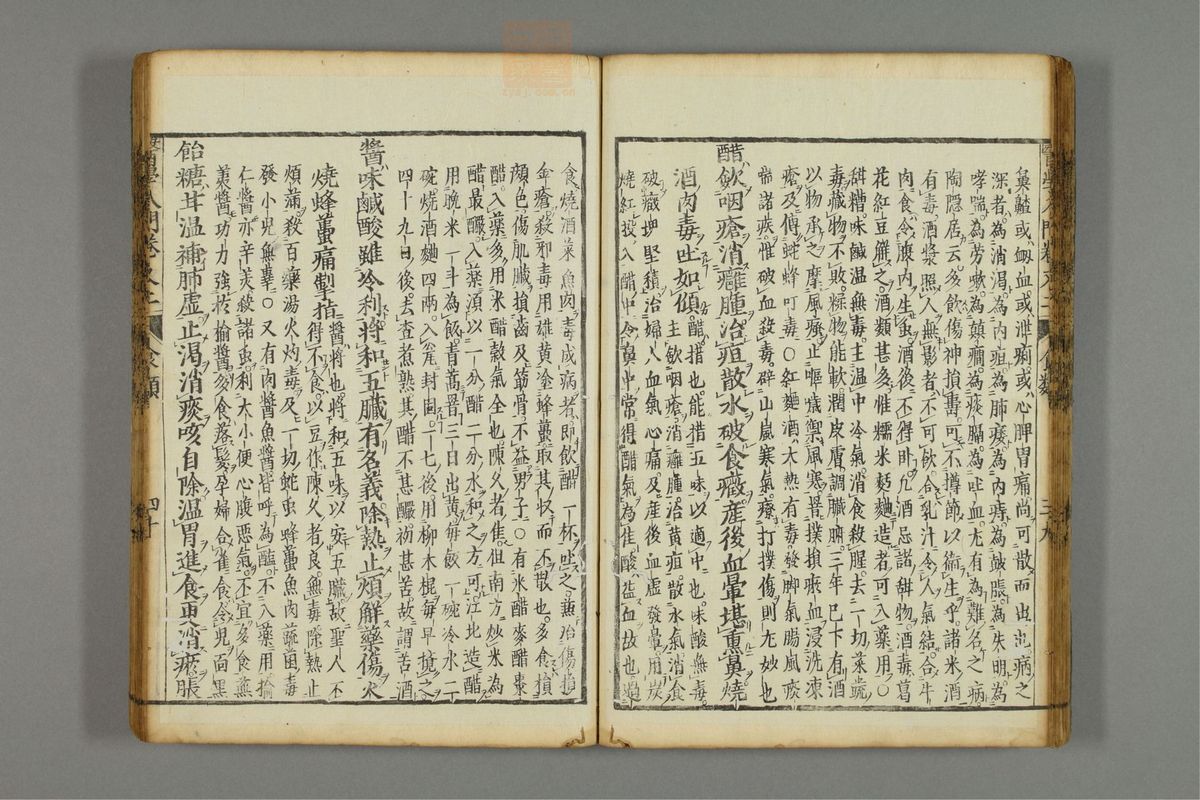 鼻齇或衂血或泄痢或心脾胃痛尚可散而出也病之
深者為消渴為內疸為肺痿為內痔為鼓脹為失明為
哮喘為勞嗽為癲癇為痰膈為吐血尤有為難名之病
陶隱居云多飲傷神損壽可不撙節以衛生乎諸米酒
有毒酒漿照人無影者不可飲合乳汁令人氣結合牛
肉食令腹內生虫酒後不得卧凡酒忌諸甜物酒毒葛
花紅豆解之酒類甚多惟糯米麪麯造者可入藥用○
酒糟味鹹溫無毒主溫中冷氣消食殺腥去一切菜蔬
毒藏物不敗糅物能軟潤皮膚調臟腑三年已下有酒
以物承之摩風瘙止嘔噦禦風寒罯撲損瘀血浸洗凍
瘡及傅蛇蜂叮毒○紅麯酒大熱有毒發脚氣腸風痰
喘諸疾惟破血殺毒辟山嵐寒氣療打撲傷則尤妙也
醋飲咽瘡消癰腫治疸散水破食癥產後血暈堪熏鼻燒
酒肉毒吐如傾
醋措也能措五味以適中也味酸無毒
主飲咽瘡消癰腫治黃疸散水氣消食
破癥堅積治婦人血氣心痛及產後血虛發暈用炭
燒紅投入醋中令鼻中常得醋氣為佳酸益血故也過
食燒酒菜魚肉毒成病者即飲醋一杯吐之熏治傷損
金瘡殺邪毒用雄黃塗蜂蠆取其收而不散也多食損
顏色傷肌臟損齒及筋骨不益男子○有米醋麥醋棗
醋入藥多用米醋穀氣全也陳久者佳但南方炒米為
醋最釅入藥須以一分醋二分水和之方可江北造醋
用晚米一斗為飯青蒿罯三日出黃每飯一碗冷水二
碗燒酒麯四兩入瓮封固二七後用柳木棍每早攪之
四十九日後去查煮熟其醋不甚釅初甚苦故謂苦酒
醬味鹹酸雖冷利將和五臟有名義除熱止煩解藥傷火
燒蜂蠆痛掣指
醬將也將和五味以安五臟故聖人不
得不食以豆作陳久者良無毒除熱止
煩滿殺百藥湯火灼毒及一切蛇虫蜂蠆魚肉蔬菌毒
發小兒無辜○又有肉醬魚醬皆呼為醢不入藥用榆
仁醬亦辛美殺諸魚利大小便心腹惡氣不宜多食蕪
荑醬功力強於榆醬多食落髮孕婦合雀食令兒面黑
飴糖甘溫補肺虛止渴消痰咳自除溫胃進食更消瘀脹
食類
四十